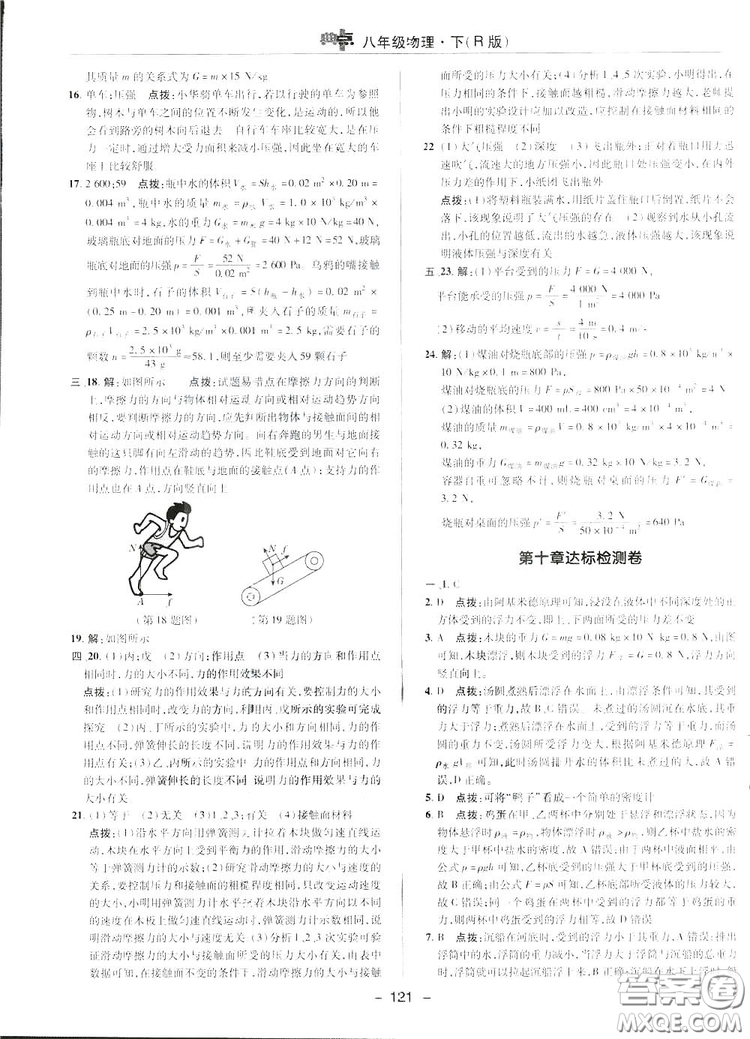 典点 八年级物理·下(R版)
其质量 m 的关系式为 G=m×15 N/kg
16. 单车;压强 点拨:小华骑单车出行,若以行驶的单车为参照
物,树木与单车之间的位置不断发生变化,是运动的,所以他
会看到路旁的树木向后退去 自行车车座比较宽大,是在压
力一定时,通过增大受力面积来减小压强,因此坐在宽大的车
座上比较舒服
17. 2 600;59 点拨:瓶中水的体积 V水=Sh水=0.02 m²×0.20 m=
0.004 m³,瓶中水的质量 m水=ρ水V水=1.0×10³ kg/m³×
0.004 m³=4 kg,水的重力 G水=m水g=4 kg×10 N/kg=40 N,
玻璃瓶底对地面的压力 F=G水+G瓶=40 N+12 N=52 N,玻璃
瓶底对地面的压强 p=F/S=52 N/0.02 m²=2 600 Pa 乌鸦的嘴接触
到瓶中水时,石子的体积 V石子=S(h瓶-h水)=0.02 m²×
(0.25 m-0.20 m)=0.001 m³,则夹入石子的质量 m石子=
ρ石V石子=2.5×10³ kg/m³×0.001 m³=2.5 kg,需要石子的
颗数 n=2.5×10³ g/43 g=58.1,则至少需要夹入 59 颗石子
三 18. 解:如图所示 点拨:试题易错点在摩擦力方向的判断
上,摩擦力的方向与物体相对运动方向或相对运动趋势方向
相反,要判断摩擦力方向,应先判断出物体与接触面间的相
对运动方向或相对运动趋势方向。向右奔跑的男生与地面接
触的这只脚有向左滑动的趋势,因此鞋底受到地面对它向右
的摩擦力,作用点在鞋底与地面的接触点(A点);支持力的作
用点也在A点,方向竖直向上
A f
N f G
(第 18 题图) (第 19 题图)
19. 解:如图所示
四 20. (1)内;戊 (2)方向;作用点 (3)当力的方向和作用点
相同时,力的大小不同,力的作用效果不同
点拨:(1)研究力的作用效果与力的方向有关,要控制力的大小
和作用点相同,改变力的方向,利用内、戊所示的实验可完成
探究 (2)内、丁所示的实验中,力的大小和方向相同,力的作
用点不同,弹簧片的长度不同,说明力的作用效果与力的作用
点有关;(3)乙、内所示的实验中,力的方向和作用点相同,力的
大小不同,弹簧伸长的长度不同 说明力的作用效果与力的
大小有关
21. (1)等于 (2)无关 (3)1、2、3;有关 (4)接触面材料
点拨:(1)沿水平方向用弹簧测力计拉着木块做匀速直线运
动,木块在水平方向上受到平衡力的作用,滑动摩擦力的大小
等于弹簧测力计的示数;(2)研究滑动摩擦力的大小与速度的
关系,要控制压力和接触面的粗糙程度相同,只改变运动速度
的大小,小明用弹簧测力计拉着木块沿水平方向以不同的速
度在木板上做匀速直线运动时,弹簧测力计示数相同,说明
滑动摩擦力的大小与速度无关 (3)分析1、2、3次实验可验
证滑动摩擦力的大小与接触面所受的压力大小有关,由表中
数据可知,在接触面不变的条件下,滑动摩擦力的大小与接触
面所受的压力大小有关;(4)分析1、4、5次实验,小明得出,在
压力相同的条件下,接触面越粗糙,滑动摩擦力越大,老师提
出小明的实验设计应加以改造,应控制在接触面材料相同的
条件下粗糙程度不同
22 (1)大气压强 (2)深度 (3)飞出瓶外;正对着瓶口用力迅
速吹气,流速大的地方压强小,因此瓶口处压强变小,在内外
压力差的作用下,小纸团飞出瓶外
点拨:(1)将塑料瓶装满水,用纸片盖住瓶口后倒置,纸片不会
落下,该现象说明了大气压强的存在 (2)观察到水从小孔流
出,小孔的位置越低,流出的水越急,液体的压强越大,该现象说
明液体压强与深度有关
五 23. 解:(1)平台受到的压力 F=G=4 000 N,
平台能承受的压强 p=F/S=4 000 N/1 m²=4 000 Pa
(2)移动的平均速度 v=s/t=4 m/10 s=0.4 m/s
24. 解:(1)煤油对烧瓶底部的压强 p=ρ煤油gh=0.8×10³ kg/m³×
10 N/kg×0.1 m=800 Pa
(2)煤油的体积 V=400 mL=400 cm³=4×10⁻⁴ m³
煤油的质量 m煤油=ρ煤油V=0.8×10³ kg/m³×4×10⁻⁴ m³=
0.32 kg,
煤油的重力 G煤油=m煤油g=0.32 kg×10 N/kg=3.2 N,
容器自重可忽略不计,则烧瓶对桌面的压力 F′=G煤油=
3.2 N,
烧瓶对桌面的压强 p′=F′/S=640 Pa
第十章达标检测卷
一、1. C
2. D 点拨:由阿基米德原理可知,浸没在液体中不同深度处的正
方体受到的浮力不变,即上、下两面所受的压力差不变
3. A 点拨:木块的重力 G=mg=0.08 kg×10 N/kg=0.8 N,由图
可知,木块漂浮,则木块受到的浮力 F浮=G=0.8 N,浮力方向
竖直向上。
4. D 点拨:汤圆煮熟后漂浮在水面上,由漂浮条件可知,其受到
的浮力等于重力,故B、C错误、未煮过的汤圆沉在水底,其重
力大于浮力;煮熟后漂浮在水面上,受到的浮力等于重力,而汤
圆的重力不变,故汤圆所受浮力变大,根据阿基米德原理 F浮=
ρ水gV排可知,此时汤圆排开水的体积比未煮过的大,故A错
误,D正确。
5. D 点拨:可将“鸭子”看成一个简单的密度计
6. B 点拨:鸡蛋在甲、乙两杯中分别处于悬浮和漂浮状态,因为
物体悬浮时ρ液=ρ物,物体漂浮时ρ液>ρ物,所以甲杯中盐水的
密度大于甲杯中盐水的密度,故A错误;两杯中液面相平,由
公式 p=ρgh 可知,乙杯底受到的压强大于甲杯底受到的压强,
故B正确;由公式 F=pS 可知,乙杯底部所受液体的压力较大,
故C错误;同一个鸡蛋在两杯中受到的浮力都等于鸡蛋的重
力,所以两杯中鸡蛋受到的浮力一样大,故D错误
7. B 点拨:沉船在河底时,受到的浮力小于其重力,A错误;排出
浮筒中的水后,当浮筒受到的浮力大于浮筒与沉船的总重力
时,浮筒就可以拉起沉船浮上来,B正确;沉船在水下上浮时,
121
答案圈
MXQE.COM